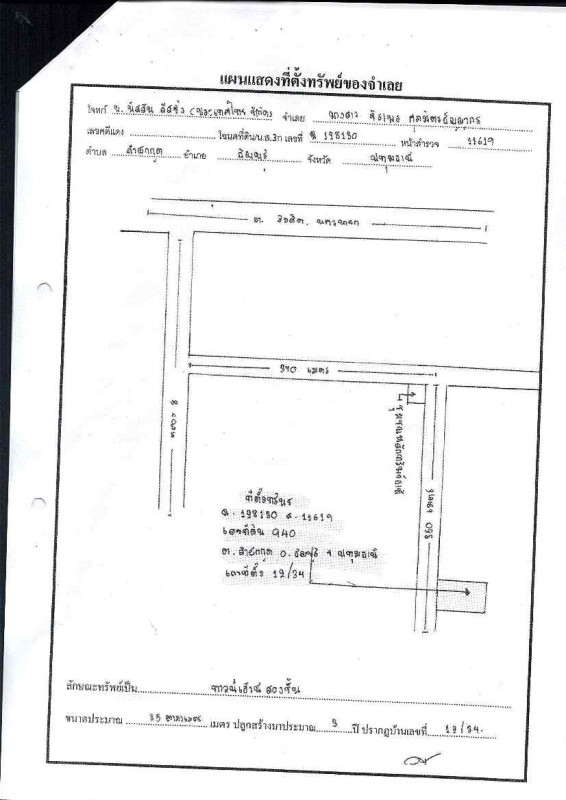 แผนแสดงที่ตั้งทรัพย์ของจำเลย
โจทก์ บ. นิสสัน ลีสซิ่ง (ประเทศไทย) จำกัด จำเลย นางสาว
เลขคดีแดง โฉนดที่ดิน/น.ส.3ก เลขที่ ฉ. 198130 หน้าสำรวจ 11619
ตำบล ลำผักกูด อำเภอ ธัญบุรี จังหวัด ปทุมธานี
ถ. รังสิต. นครนายก
390 เมตร
ที่ตั้งทรัพย์
ฉ. 198130 ส. 11619
เลขที่ดิน 940
ต. ลำผักกูด อ. ธัญบุรี จ. ปทุมธานี
เลขที่ตั้ง 19/34
ลักษณะทรัพย์เป็น ทาวน์เฮ้าส์ สองชั้น
ขนาดประมาณ 35 ตารางเมตร เมตร ปลูกสร้างมาประมาณ 9 ปี ปรากฏบ้านเลขที่ 19/34.